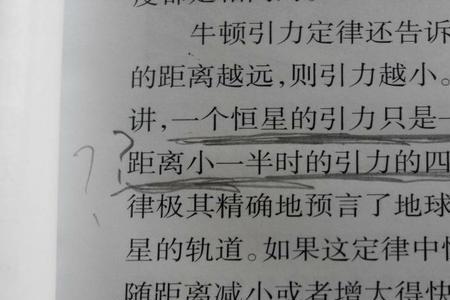 牛顿引力定律还告诉
的距离越远,则引力越小。
讲,一个恒星的引力只是一
距离小一半时的引力的四
律极其精确地预言了地球
星的轨道。如果这定律中
随距离减小或者增大得快
??